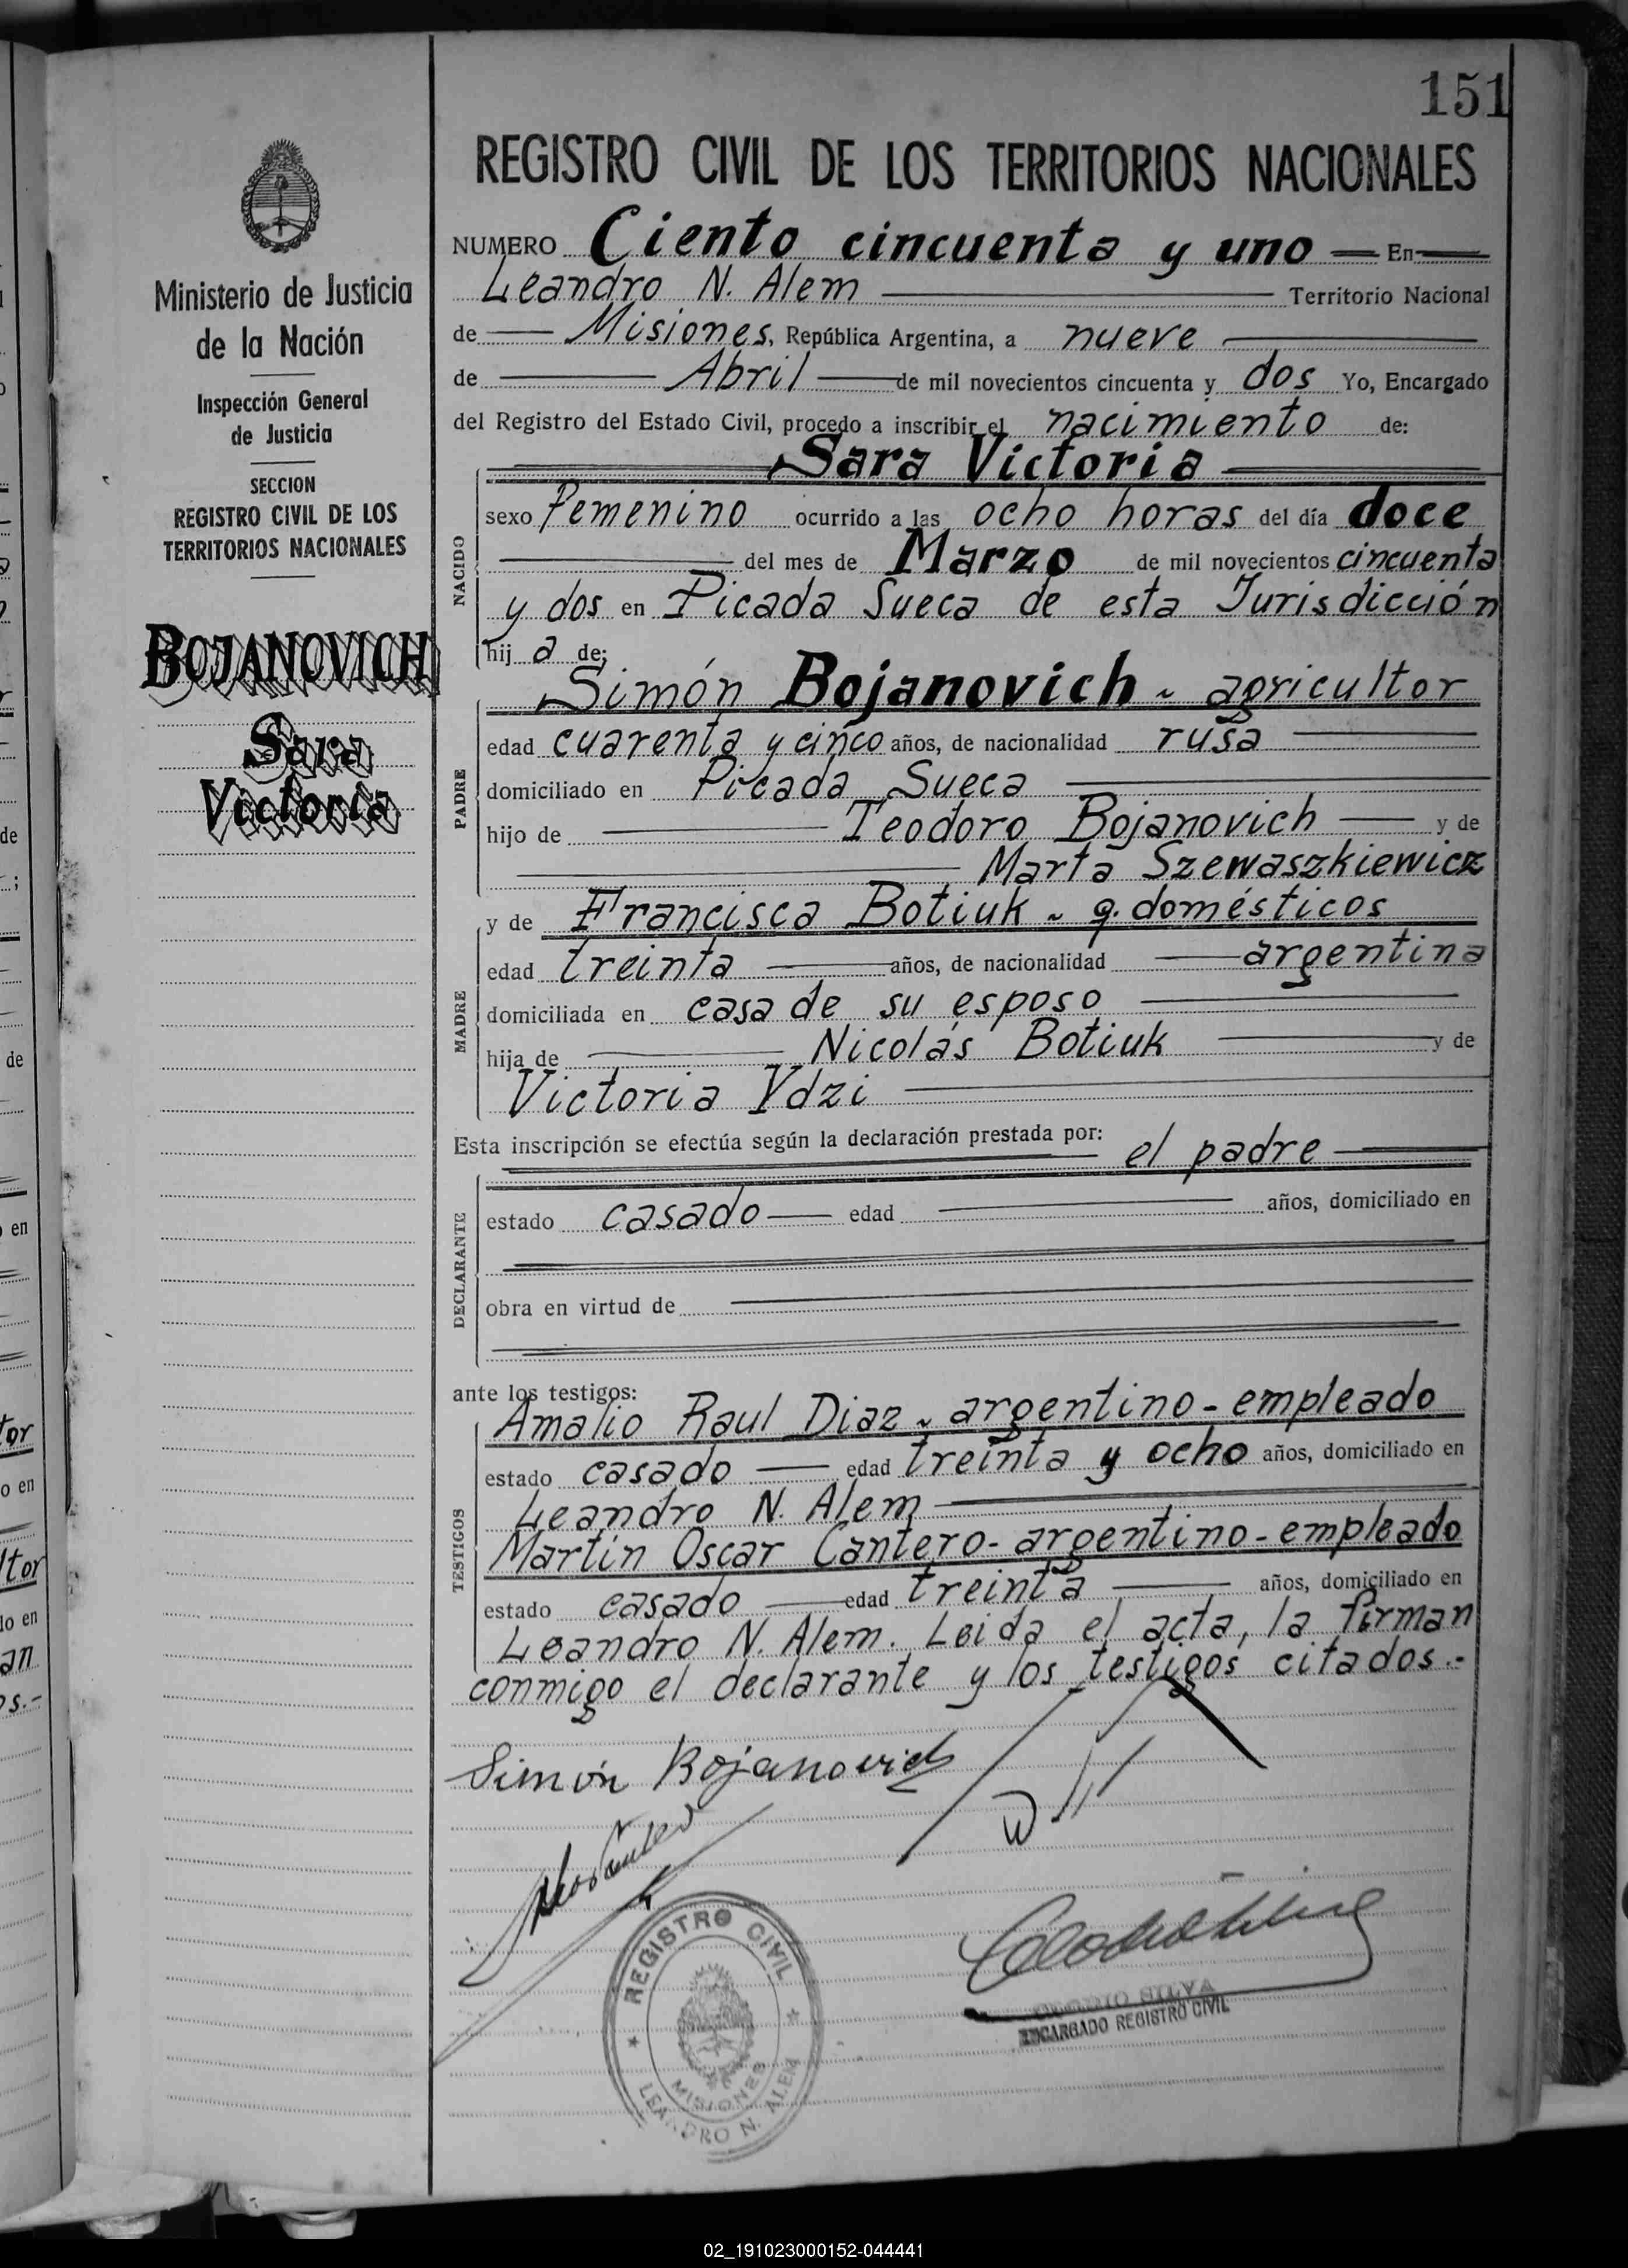 151
Ministerio de Justicia
de la Nación
Inspección General
de Justicia
SECCION
REGISTRO CIVIL DE LOS
TERRITORIOS NACIONALES
BOJANOVICH
Sara
Victoria
REGISTRO CIVIL DE LOS TERRITORIOS NACIONALES
NUMERO Ciento cincuenta y uno — En —
Leandro N. Alem — Territorio Nacional
de — Misiones, República Argentina, a nueve —
de — Abril — de mil novecientos cincuenta y dos Yo, Encargado
del Registro del Estado Civil, procedo a inscribir el nacimiento de:
Sara Victoria
NACIDO
sexo femenino ocurrido a las ocho horas del día doce
— del mes de Marzo de mil novecientos cincuenta
y dos en Picada Sueca de esta Jurisdicción
hij a de;
PADRE
Simón Bojanovich - agricultor
edad cuarenta y cinco años, de nacionalidad rusa —
domiciliado en Picada Sueca —
hijo de — Teodoro Bojanovich — y de
— Marta Szewaszkiewicz
MADRE
y de Francisca Botiuk - q. domésticos
edad treinta — años, de nacionalidad — argentina
domiciliada en casa de su esposo —
hija de — Nicolás Botiuk — y de
Victoria Ydzi —
Esta inscripción se efectúa según la declaración prestada por:
el padre —
DECLARANTE
estado casado — edad — años, domiciliado en
obra en virtud de —
ante los testigos:
TESTIGOS
Amalio Raul Diaz - argentino - empleado
estado casado — edad treinta y ocho años, domiciliado en
Leandro N. Alem —
Martin Oscar Cantero - argentino - empleado
estado casado — edad treinta — años, domiciliado en
Leandro N. Alem. Leida el acta, la firman
conmigo el declarante y los testigos citados.-
Simón Bojanovich
REGISTRO CIVIL
MISIONES
LEANDRO N. ALEM
CLODIO SILVA
ENCARGADO REGISTRO CIVIL
de
de
en
tor
o en
ltor
lo en
an
os.-
02_191023000152-044441